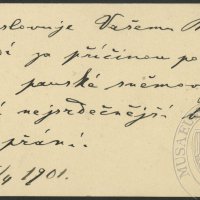 slovuje Vašemu
za příčinou po
panské sněmov
nejsrdečnější
přání.
1901.
MUSAEU